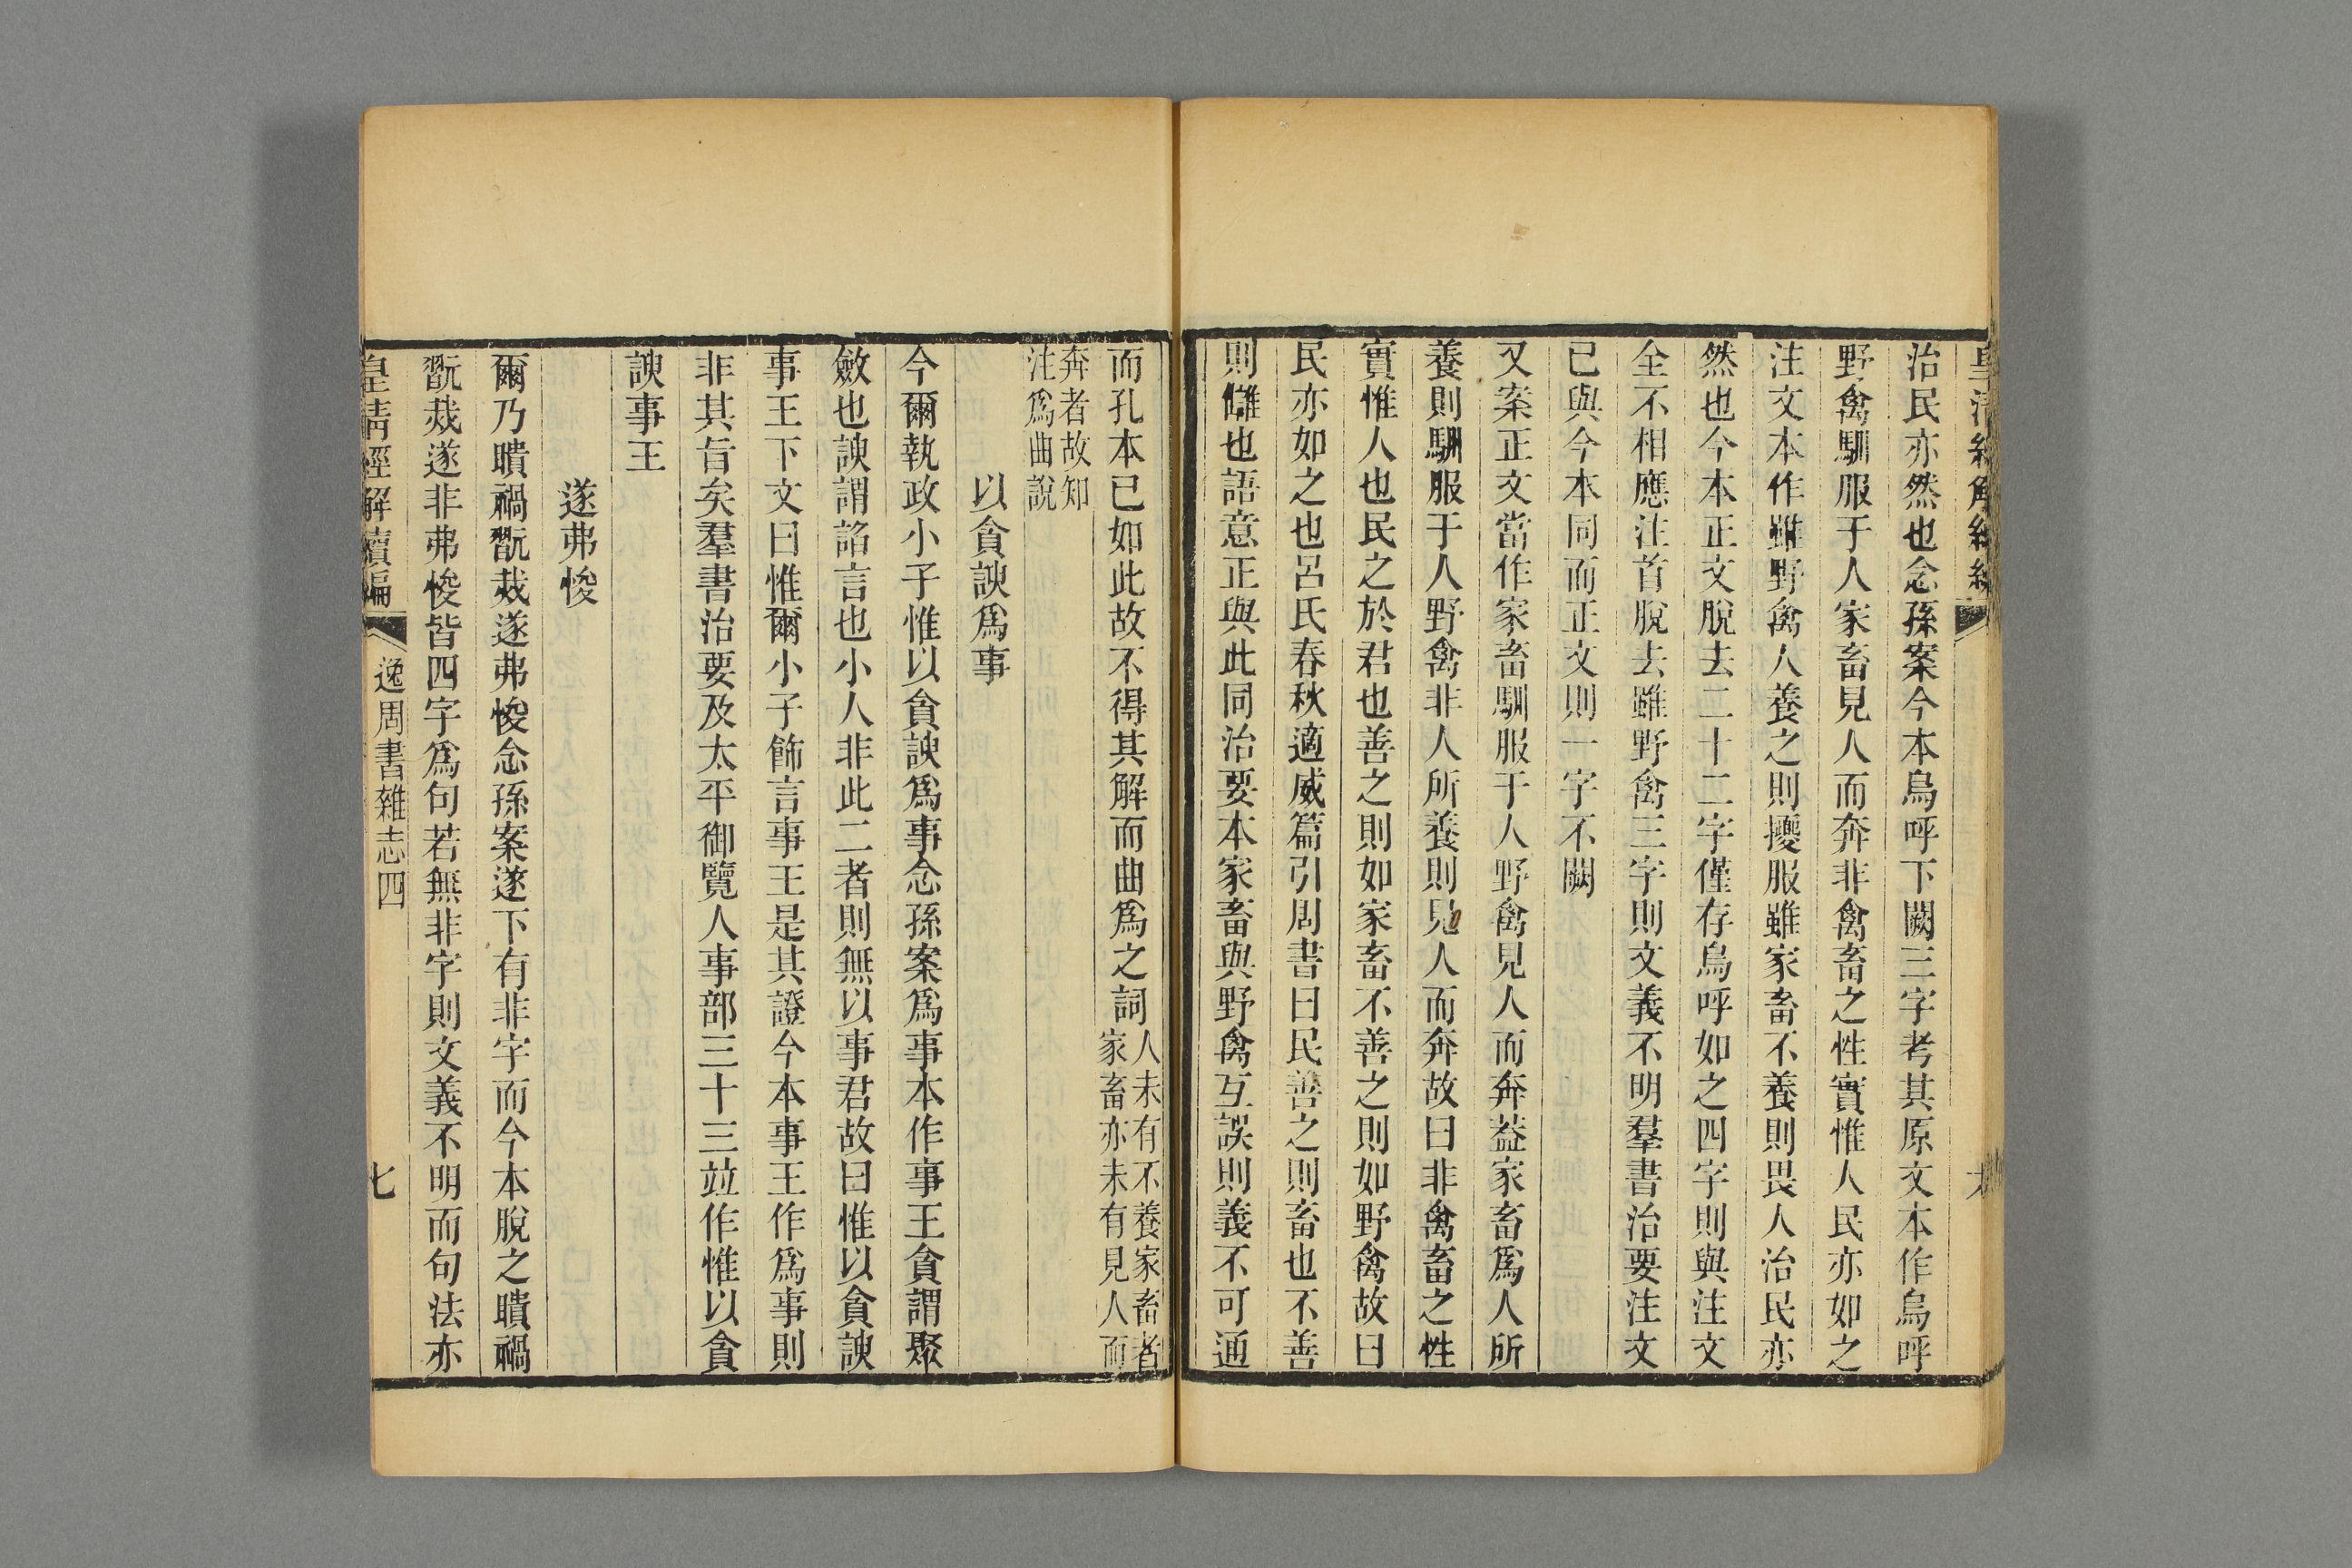 治民亦然也念孫案今本烏呼下闕三字考其原文本作烏呼
野禽馴服于人家畜見人而奔非禽畜之性實惟人民亦如之
注文本作雖野禽人養之則擾服雖家畜不養則畏人治民亦
然也今本正文脫去二十二字僅存烏呼如之四字則與注文
全不相應注首脫去雖野禽三字則文義不明羣書治要注文
已與今本同而正文則一字不闕
又案正文當作家畜馴服于人野禽見人而奔葢家畜爲人所
養則馴服于人野禽非人所養則見人而奔故曰非禽畜之性
實惟人也民之於君也善之則如家畜不善之則如野禽故曰
民亦如之也呂氏春秋適威篇引周書曰民善之則畜也不善
則讎也語意正與此同治要本家畜與野禽互誤則義不可通
而孔本已如此故不得其解而曲爲之詞人未有不養家畜者
家畜亦未有見人而
奔者故知
注爲曲說
以貪諛爲事
今爾執政小子惟以貪諛爲事念孫案爲事本作事王貪謂聚
斂也諛謂諂言也小人非此二者則無以事君故曰惟以貪諛
事王下文曰惟爾小子飾言事王是其證今本事王作爲事則
非其旨矣羣書治要及太平御覽人事部三十三竝作惟以貪
諛事王
遂弗悛
爾乃聵禍翫烖遂弗悛念孫案遂下有非字而今本脫之聵禍
翫烖遂非弗悛皆四字爲句若無非字則文義不明而句法亦
皇清經解續編
逸周書雜志四
七